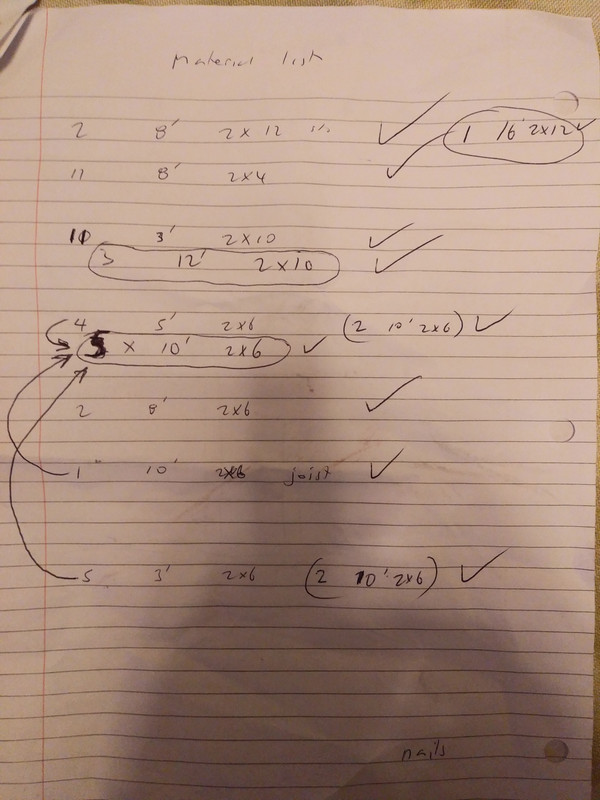 Material list
2 8' 2x12 ✓ 1 16' 2x12 ✓
11 8' 2x4 ✓
10 3' 2x10 ✓
3 12' 2x10 ✓
4 5' 2x6 (2 10' 2x6) ✓
5 x 10' 2x6 ✓
2 8' 2x6 ✓
1 10' 2x6 joist ✓
5 3' 2x6 (2 10' 2x6) ✓
nails